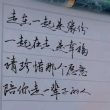 走在一起是缘份
一起在走是幸福
请珍惜那个愿意
陪你走一辈子的人